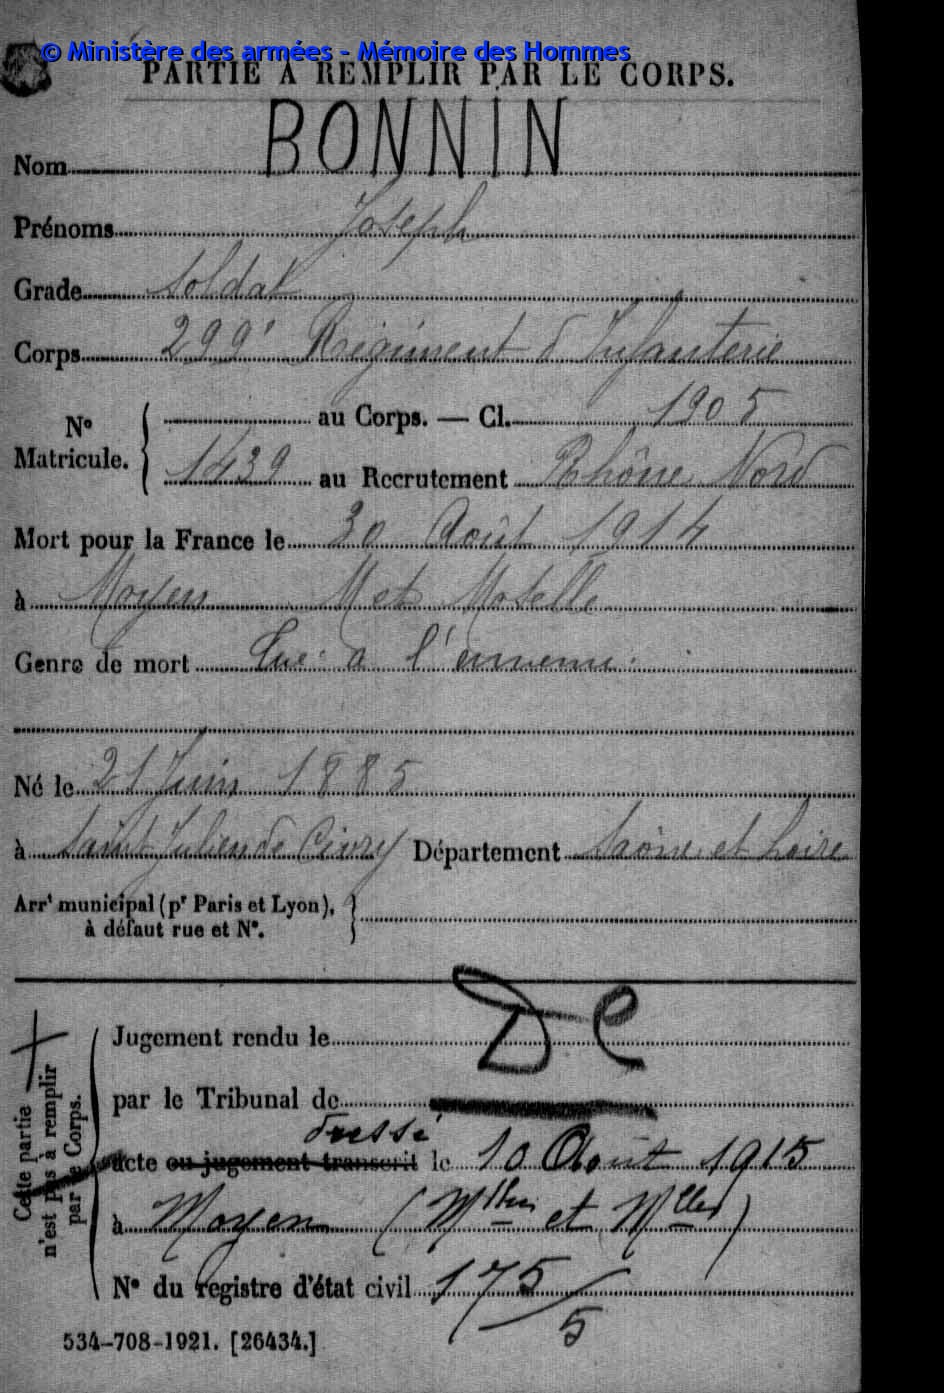 © Ministère des armées - Mémoire des Hommes
PARTIE À REMPLIR PAR LE CORPS.
Nom BONNIN
Prénoms Joseph
Grade Soldat
Corps 299e Régiment d'Infanterie
N° Matricule. { au Corps. — Cl. 1905
1439 au Recrutement Rhône Nord
Mort pour la France le 30 Août 1914
à Moyen M et Moselle
Genre de mort Tué à l'ennemi.
Né le 21 Juin 1885
à Saint Julien de Civry Département Saône et Loire
Arrt municipal (pr Paris et Lyon),
à défaut rue et N°.
Cette partie n'est pas à remplir par le Corps.
Jugement rendu le
par le Tribunal de
DC
dressé
acte ou jugement transcrit le 10 Août 1915
à Moyen (Mthe et Mlle)
N° du registre d'état civil 175/5
534-708-1921. [26434.]